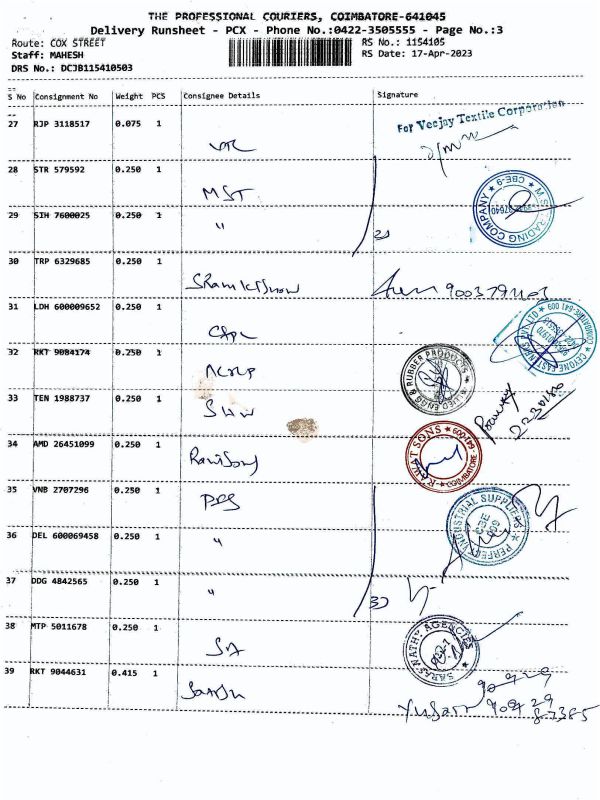 THE PROFESSIONAL COURIERS, COIMBATORE-641045
Delivery Runsheet - PCX - Phone No.:0422-3505555 - Page No.:3
Route: COX STREET RS No.: 1154105
Staff: MAHESH RS Date: 17-Apr-2023
DRS No.: DCJB115410503
S No Consignment No Weight PCS Consignee Details Signature
27 RJP 3118517 0.075 1 For Veejay Textile Corporation
28 STR 579592 0.250 1 MST
29 SIH 7600025 0.250 1 "
30 TRP 6329685 0.250 1
31 LDH 600009652 0.250 1
32 RKT 9084174 0.250 1
RUBBER PRODUCTS
33 TEN 1988737 0.250 1
34 AMD 26451099 0.250 1
RAWAT SONS
35 VNB 2707296 0.250 1
PERFECT INDUSTRIAL SUPPLIERS
36 DEL 600069458 0.250 1 "
37 DDG 4842565 0.250 1 "
38 MTP 5011678 0.250 1 SA
39 RKT 9044631 0.415 1